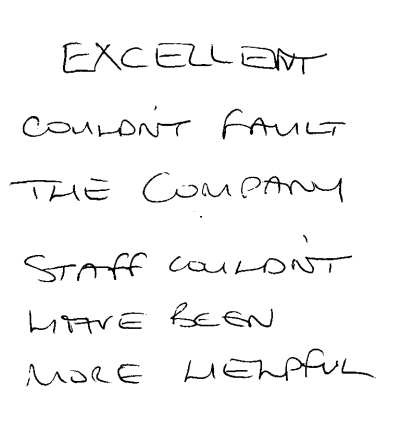 EXCELLENT
COULDN'T FAULT
THE COMPANY
STAFF COULDN'T
HAVE BEEN
MORE HELPFUL